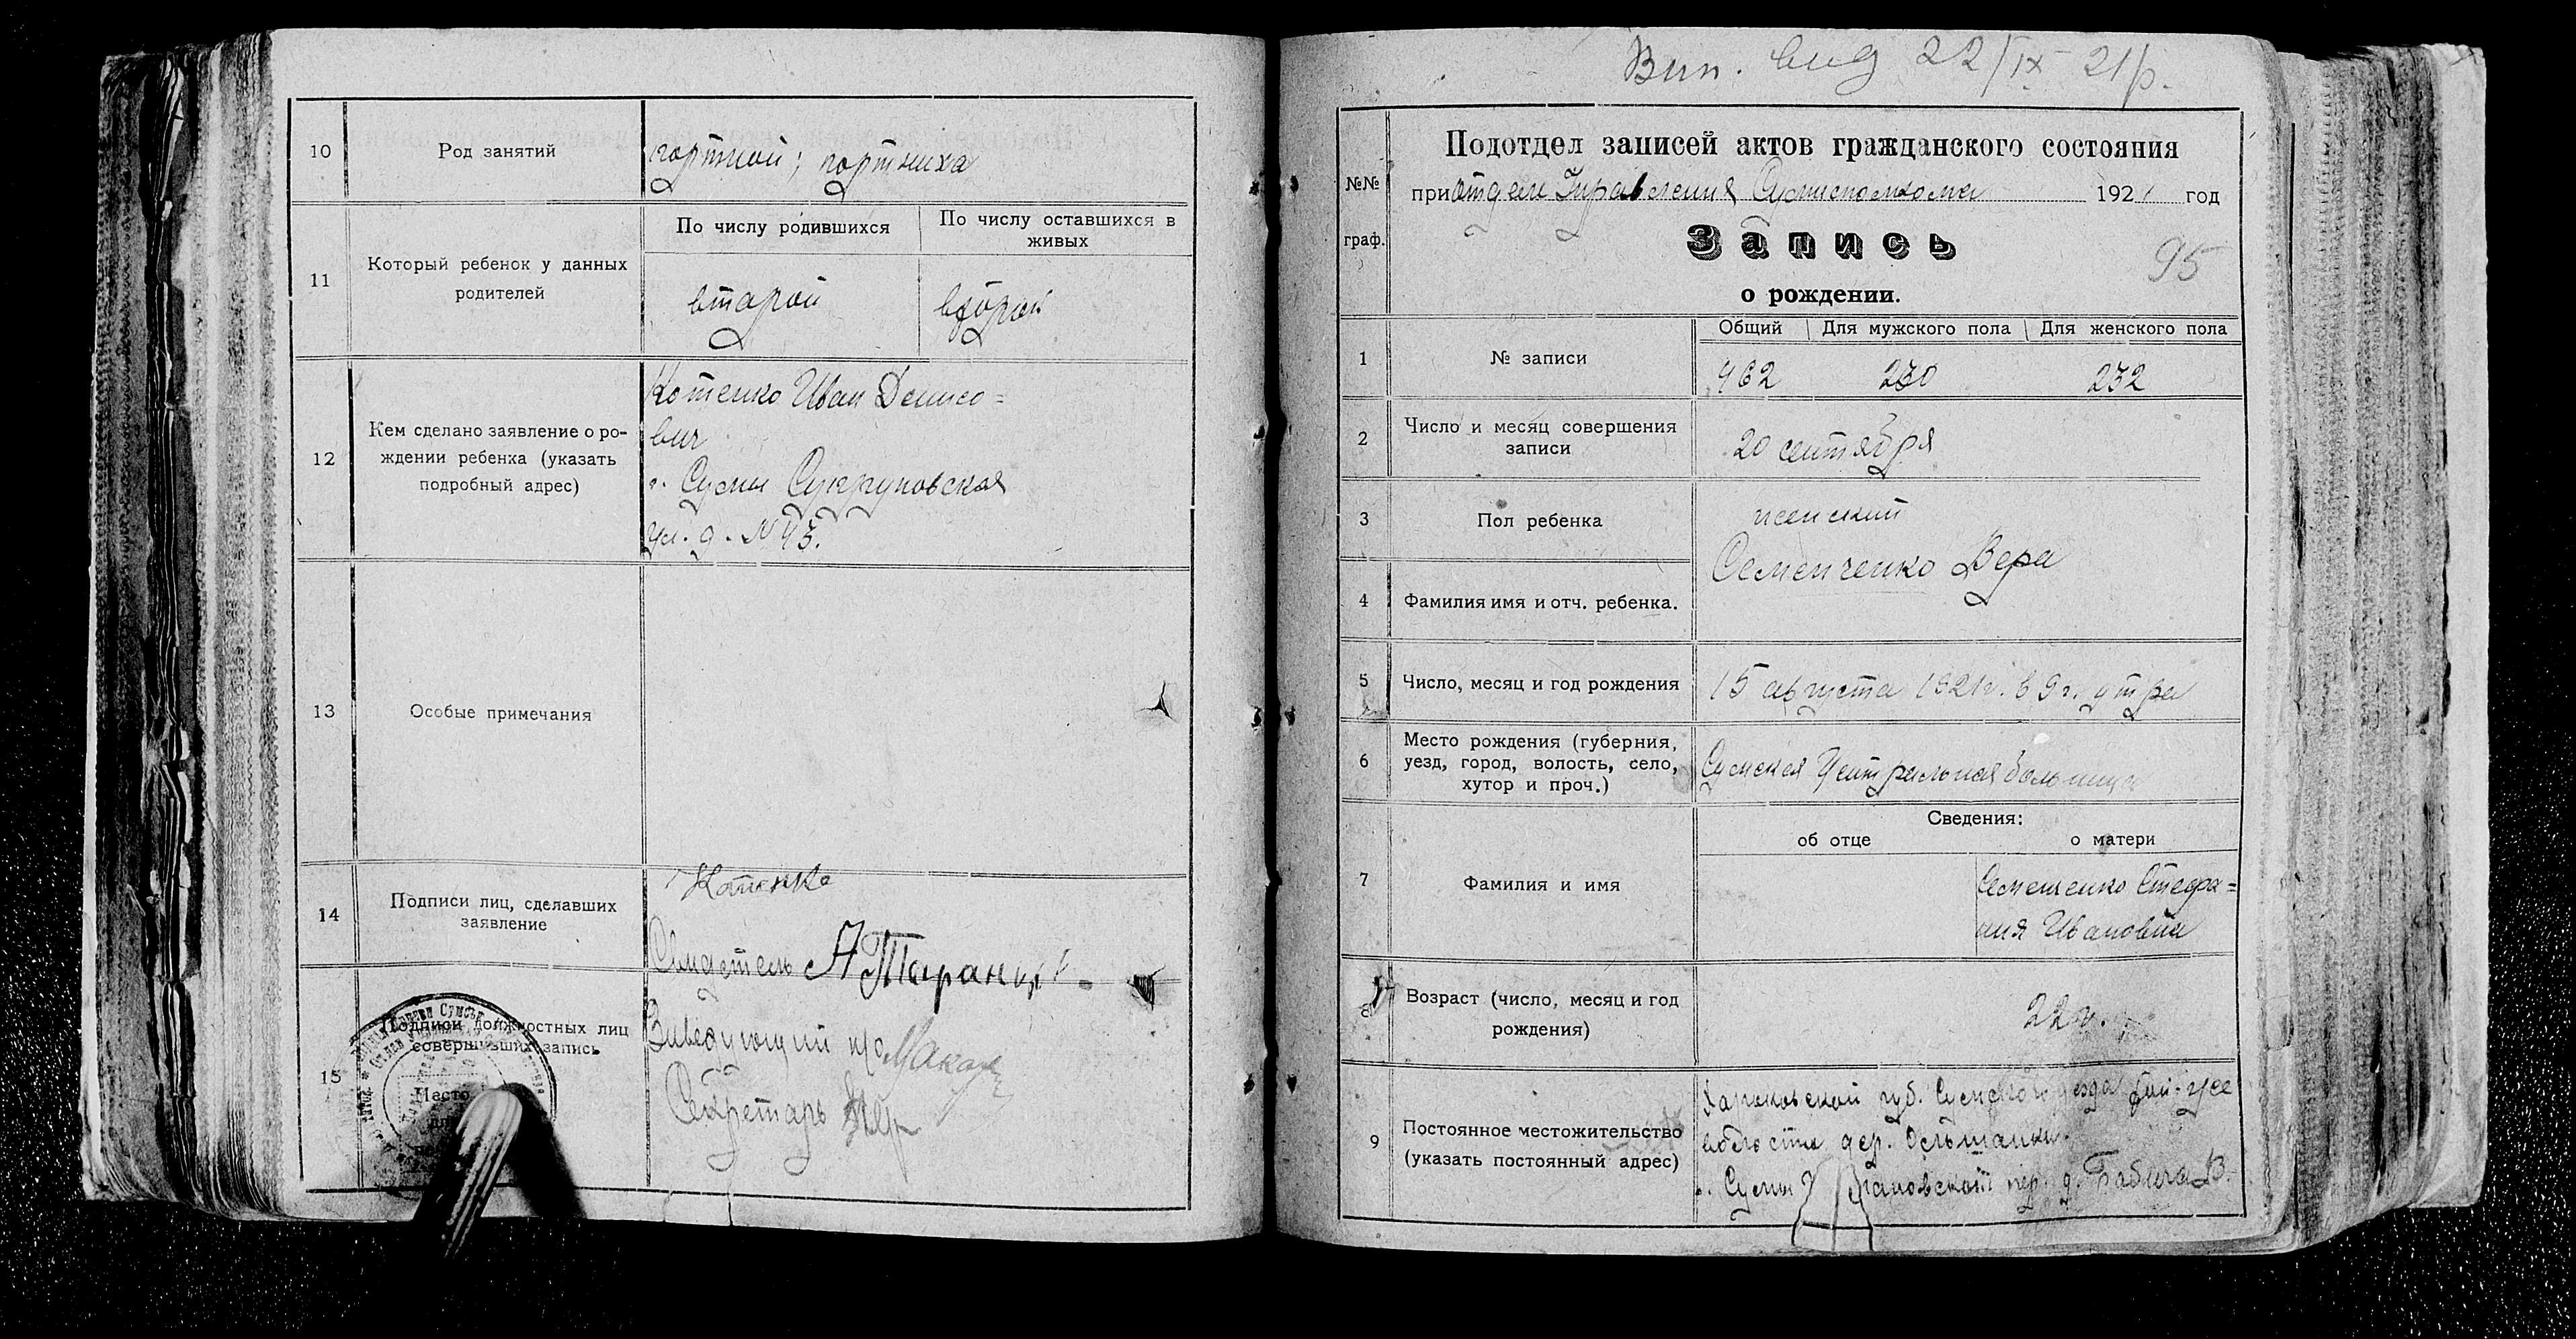 10
Род занятий
портной; портниха
11
Который ребенок у данных
родителей
По числу родившихся
По числу оставшихся в
живых
второй
второй
12
Кем сделано заявление о ро-
ждении ребенка (указать
подробный адрес)
Котенко Иван Денисо=
вич
г. Сумы
ул. д. № 43.
13
Особые примечания
14
Подписи лиц, сделавших
заявление
Котенко
15
Подписи должностных лиц
совершивших запись
Место
Заведующий п/о
Секретарь
Вип. вид 22/IX 21р.
№№
граф.
Подотдел записей актов гражданского состояния
при отделе Управления Сумисполкома 1921 год
Запись
95
о рождении.
1
№ записи
Общий
Для мужского пола
Для женского пола
462
230
232
2
Число и месяц совершения
записи
20 сентября
3
Пол ребенка
женский
4
Фамилия имя и отч. ребенка.
Семенченко Вера
5
Число, месяц и год рождения
15 августа 1921 г. в 9 г. утра
6
Место рождения (губерния,
уезд, город, волость, село,
хутор и проч.)
Сумская Центральная больница
Сведения:
об отце
о матери
7
Фамилия и имя
Стефа=
ния Ивановна
8
Возраст (число, месяц и год
рождения)
22 г.
9
Постоянное местожительство
(указать постоянный адрес)
Харьковской губ. Сумского уезда
волости дер. Ольшанки.
г. Сумы пер. д. Бабича